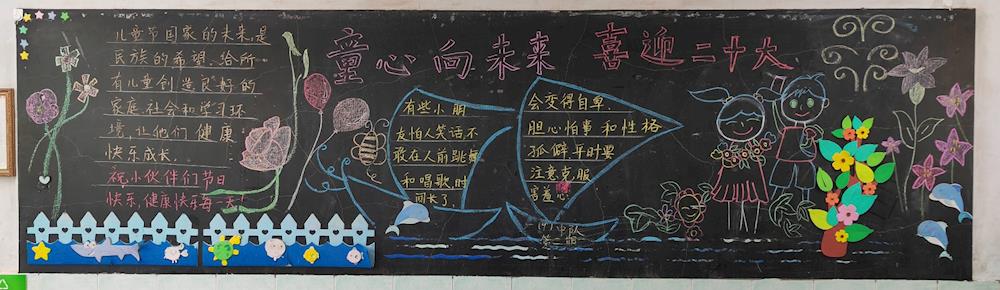 童心向未来 喜迎二十大
儿童节国家的未来,是
民族的希望.给所
有儿童创造良好的
家庭.社会和学习环
境,让他们健康
快乐成长.
祝小伙伴们节日
快乐,健康快乐每一天!
有些小朋
友怕人笑话不
敢在人前跳舞
和唱歌,时
间长了.
会变得自卑.
胆心怕事和性格
孤僻.平时要
注意克服
害羞心.
中队
第二期